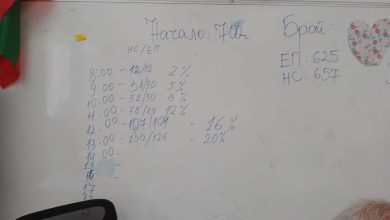 Начало 7:00ч
Брой:
ЕП: 625
НС: 657
НС/ЕП
8:00 - 12/12 2%
9:00 - 31/30 5%
10:00 - 52/50 8%
11:00 - 78/75 12%
12:00 - 107/104 - 16%
13:00 - 130/126 - 20%
14:00 -
15
16 -
17